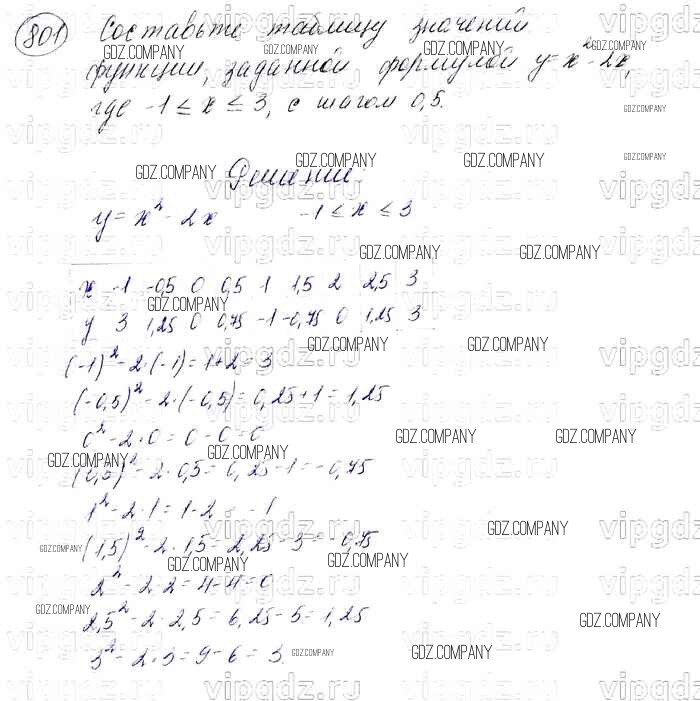 801 Составьте таблицу значений
функции, заданной формулой y = x² - 2x,
где -1 ≤ x ≤ 3, с шагом 0,5.
Решение.
y = x² - 2x -1 ≤ x ≤ 3
x -1 -0,5 0 0,5 1 1,5 2 2,5 3
y 3 1,25 0 0,75 -1 -0,75 0 1,25 3
(-1)² - 2·(-1) = 1+2 = 3
(-0,5)² - 2·(-0,5) = 0,25+1 = 1,25
0² - 2·0 = 0-0 = 0
(0,5)² - 2·0,5 = 0,25-1 = -0,75
1² - 2·1 = 1-2 = -1
(1,5)² - 2·1,5 = 2,25-3 = -0,75
2² - 2·2 = 4-4 = 0
2,5² - 2·2,5 = 6,25-5 = 1,25
3² - 2·3 = 9-6 = 3.